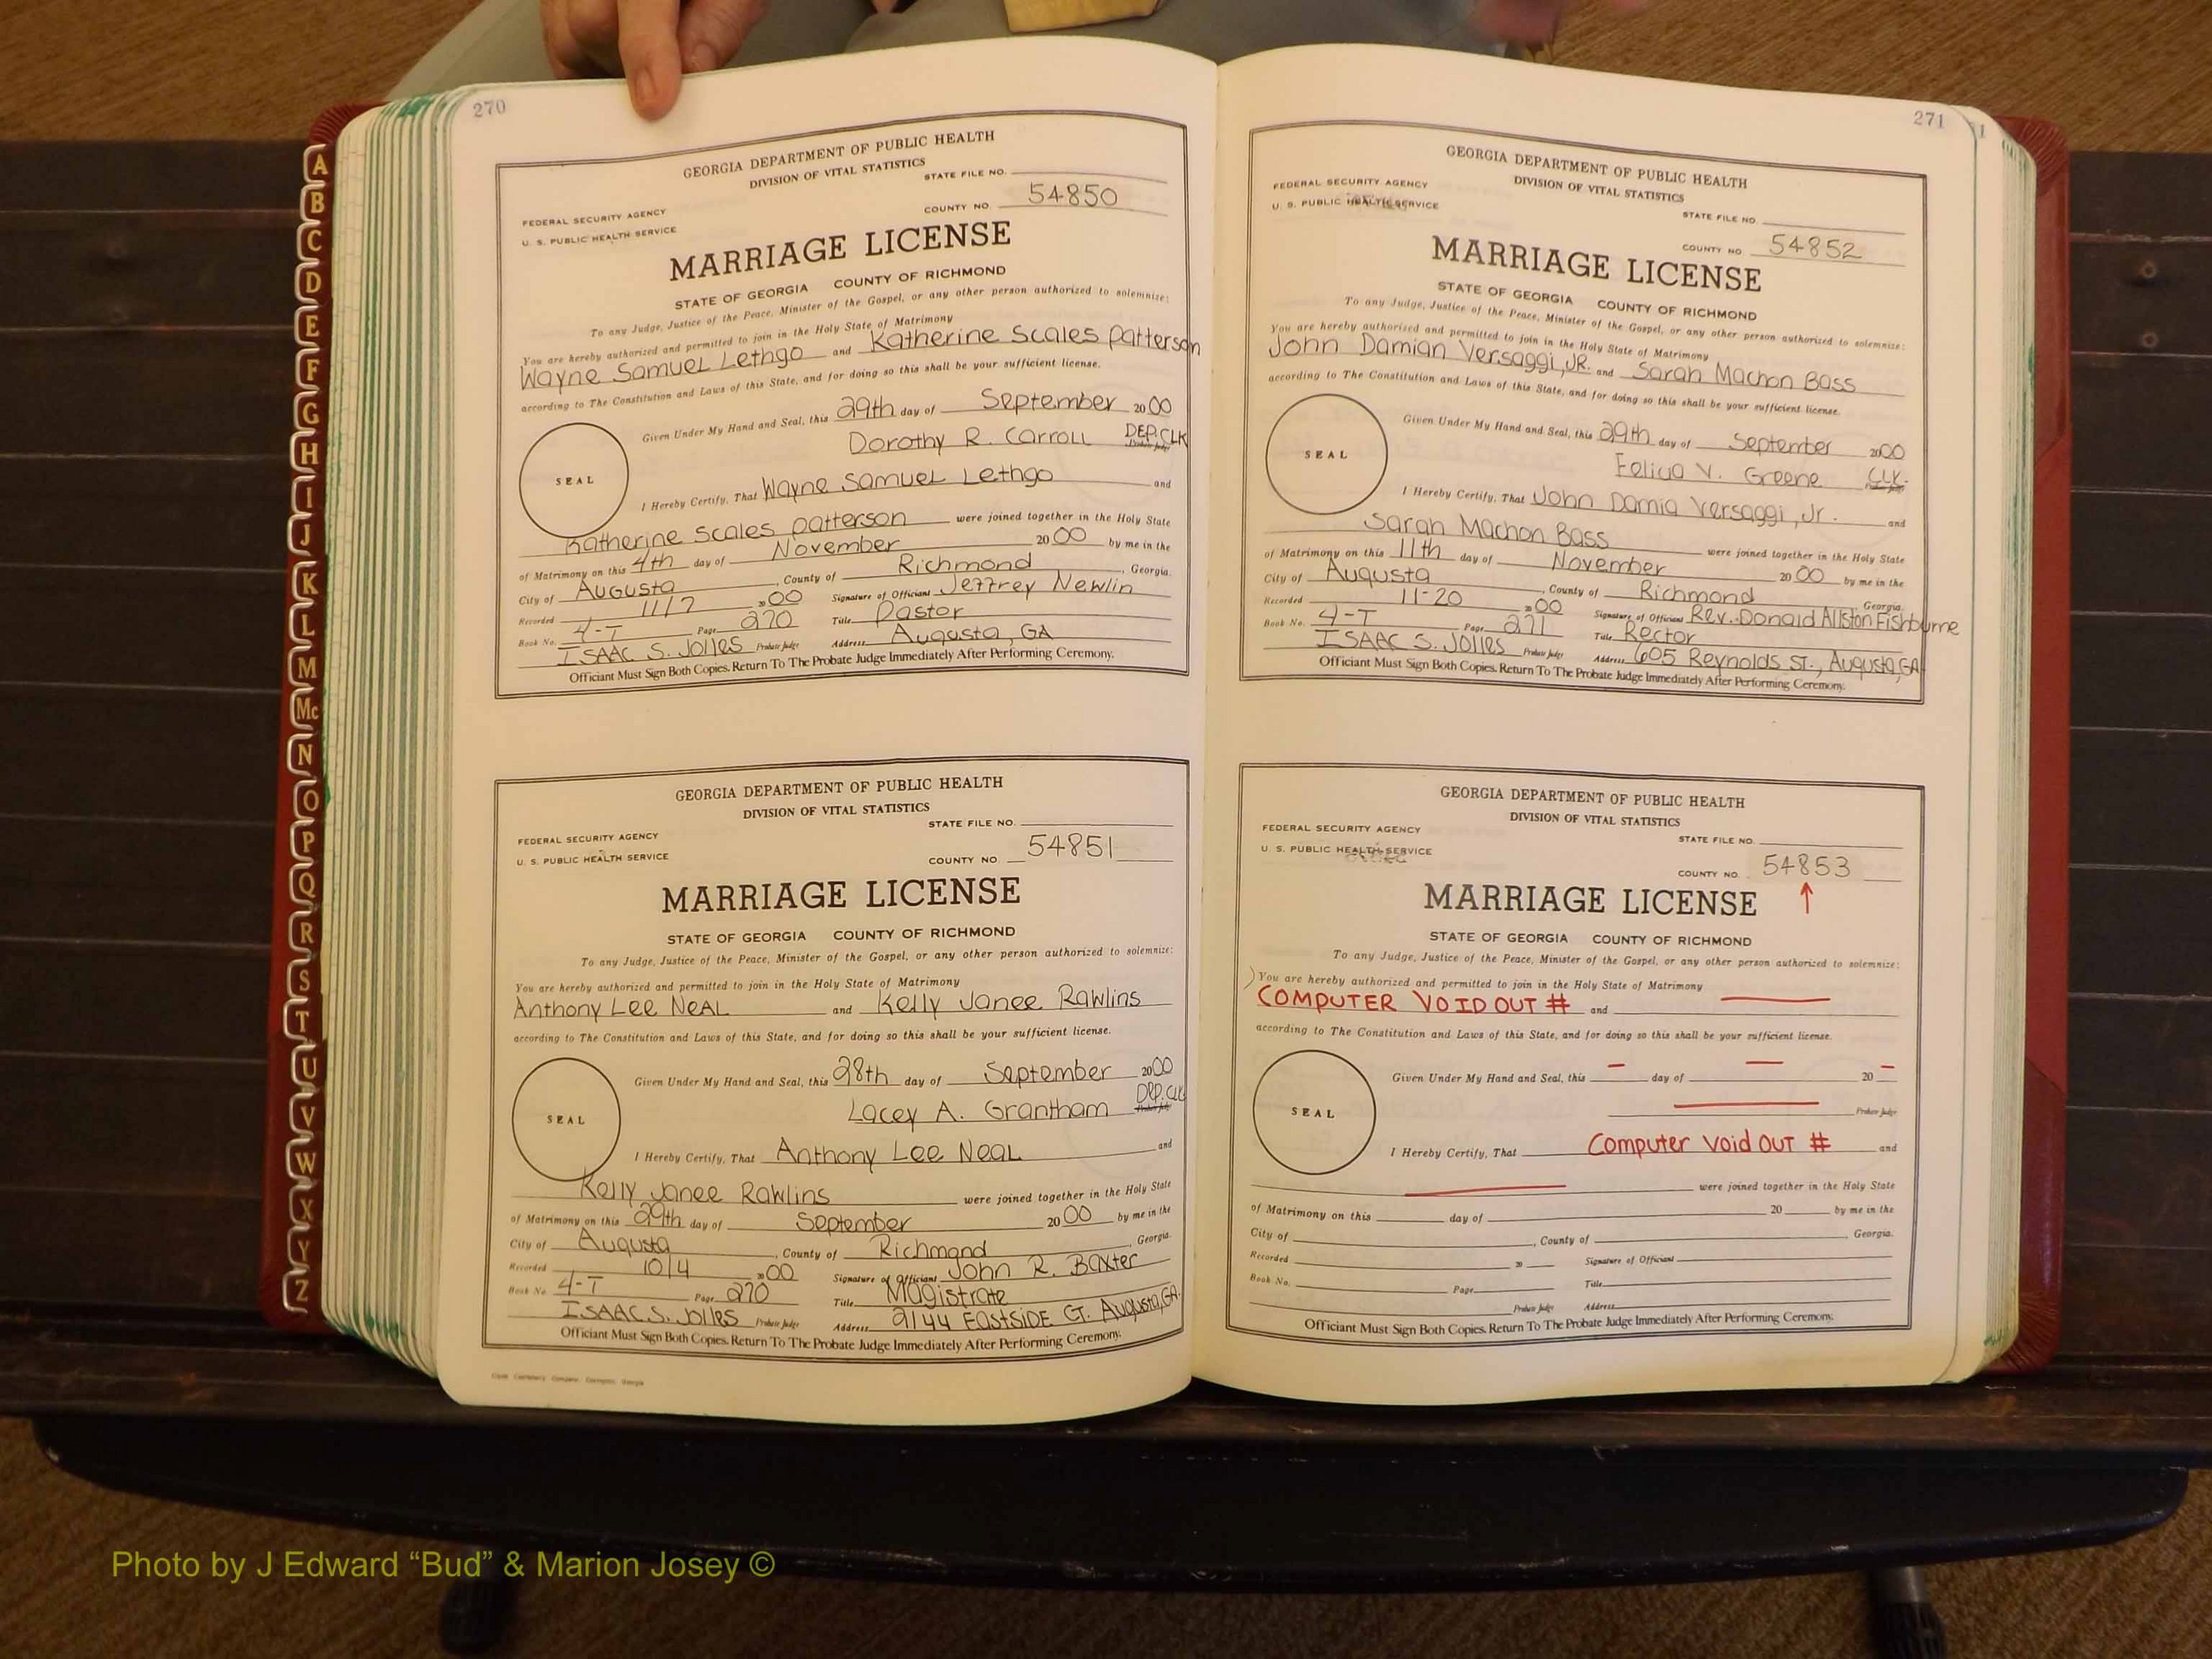 270
GEORGIA DEPARTMENT OF PUBLIC HEALTH
DIVISION OF VITAL STATISTICS
STATE FILE NO.
FEDERAL SECURITY AGENCY
U. S. PUBLIC HEALTH SERVICE
COUNTY NO. 54850
MARRIAGE LICENSE
STATE OF GEORGIA COUNTY OF RICHMOND
To any Judge, Justice of the Peace, Minister of the Gospel, or any other person authorized to solemnize:
You are hereby authorized and permitted to join in the Holy State of Matrimony
Wayne Samuel Lethgo and Katherine Scales Patterson
according to The Constitution and Laws of this State, and for doing so this shall be your sufficient license.
Given Under My Hand and Seal, this 29th day of September 2000
Dorothy R. Carroll DEP. CLK
Probate Judge
SEAL
I Hereby Certify, That Wayne Samuel Lethgo and
Katherine Scales Patterson were joined together in the Holy State
of Matrimony on this 4th day of November 2000 by me in the
City of Augusta, County of Richmond, Georgia.
Recorded 11/7 2000 Signature of Officiant Jeffrey Newlin
Book No. 4-T Page 270 Title Pastor
ISAAC S. Jolles Probate Judge Address Augusta, GA
Officiant Must Sign Both Copies. Return To The Probate Judge Immediately After Performing Ceremony.
GEORGIA DEPARTMENT OF PUBLIC HEALTH
DIVISION OF VITAL STATISTICS
STATE FILE NO.
FEDERAL SECURITY AGENCY
U. S. PUBLIC HEALTH SERVICE
COUNTY NO. 54851
MARRIAGE LICENSE
STATE OF GEORGIA COUNTY OF RICHMOND
To any Judge, Justice of the Peace, Minister of the Gospel, or any other person authorized to solemnize:
You are hereby authorized and permitted to join in the Holy State of Matrimony
Anthony Lee Neal and Kelly Janee Rawlins
according to The Constitution and Laws of this State, and for doing so this shall be your sufficient license.
Given Under My Hand and Seal, this 28th day of September 2000
Lacey A. Grantham Dep. Clk
Probate Judge
SEAL
I Hereby Certify, That Anthony Lee Neal and
Kelly Janee Rawlins were joined together in the Holy State
of Matrimony on this 29th day of September 2000 by me in the
City of Augusta, County of Richmond Georgia.
Recorded 10/4 2000 Signature of Officiant John R. Baxter
Book No. 4-T Page 270 Title Magistrate
ISAAC S. Jolles Probate Judge Address 2144 EASTSIDE CT. Augusta, GA.
Officiant Must Sign Both Copies. Return To The Probate Judge Immediately After Performing Ceremony.
271
GEORGIA DEPARTMENT OF PUBLIC HEALTH
DIVISION OF VITAL STATISTICS
FEDERAL SECURITY AGENCY
U. S. PUBLIC HEALTH SERVICE
STATE FILE NO.
COUNTY NO. 54852
MARRIAGE LICENSE
STATE OF GEORGIA COUNTY OF RICHMOND
To any Judge, Justice of the Peace, Minister of the Gospel, or any other person authorized to solemnize:
You are hereby authorized and permitted to join in the Holy State of Matrimony
John Damian Versaggi, JR. and Sarah Machon Bass
according to The Constitution and Laws of this State, and for doing so this shall be your sufficient license.
Given Under My Hand and Seal, this 29th day of September 2000
Felicia V. Greene CLK.
Probate Judge
SEAL
I Hereby Certify, That John Damia Versaggi, Jr. and
Sarah Machon Bass were joined together in the Holy State
of Matrimony on this 11th day of November 2000 by me in the
City of Augusta, County of Richmond Georgia.
Recorded 11-20 2000 Signature of Officiant Rev. Donald Allston Fishburne
Book No. 4-T Page 271 Title Rector
ISAAC S. Jolles Probate Judge Address 605 Reynolds ST., Augusta, GA
Officiant Must Sign Both Copies. Return To The Probate Judge Immediately After Performing Ceremony.
GEORGIA DEPARTMENT OF PUBLIC HEALTH
DIVISION OF VITAL STATISTICS
FEDERAL SECURITY AGENCY
U. S. PUBLIC HEALTH SERVICE
STATE FILE NO.
COUNTY NO. 54853
MARRIAGE LICENSE
STATE OF GEORGIA COUNTY OF RICHMOND
To any Judge, Justice of the Peace, Minister of the Gospel, or any other person authorized to solemnize:
You are hereby authorized and permitted to join in the Holy State of Matrimony
COMPUTER VOID OUT # and
according to The Constitution and Laws of this State, and for doing so this shall be your sufficient license.
Given Under My Hand and Seal, this day of 20
Probate Judge
SEAL
I Hereby Certify, That Computer Void OUT # and
were joined together in the Holy State
of Matrimony on this day of 20 by me in the
City of , County of Georgia.
Recorded 20 Signature of Officiant
Book No. Page Title
Probate Judge Address
Officiant Must Sign Both Copies. Return To The Probate Judge Immediately After Performing Ceremony.
A
B
C
D
E
F
G
H
I
J
K
L
M
Mc
N
O
P
Q
R
S
T
U
V
W
X
Y
Z
Photo by J Edward “Bud” & Marion Josey ©